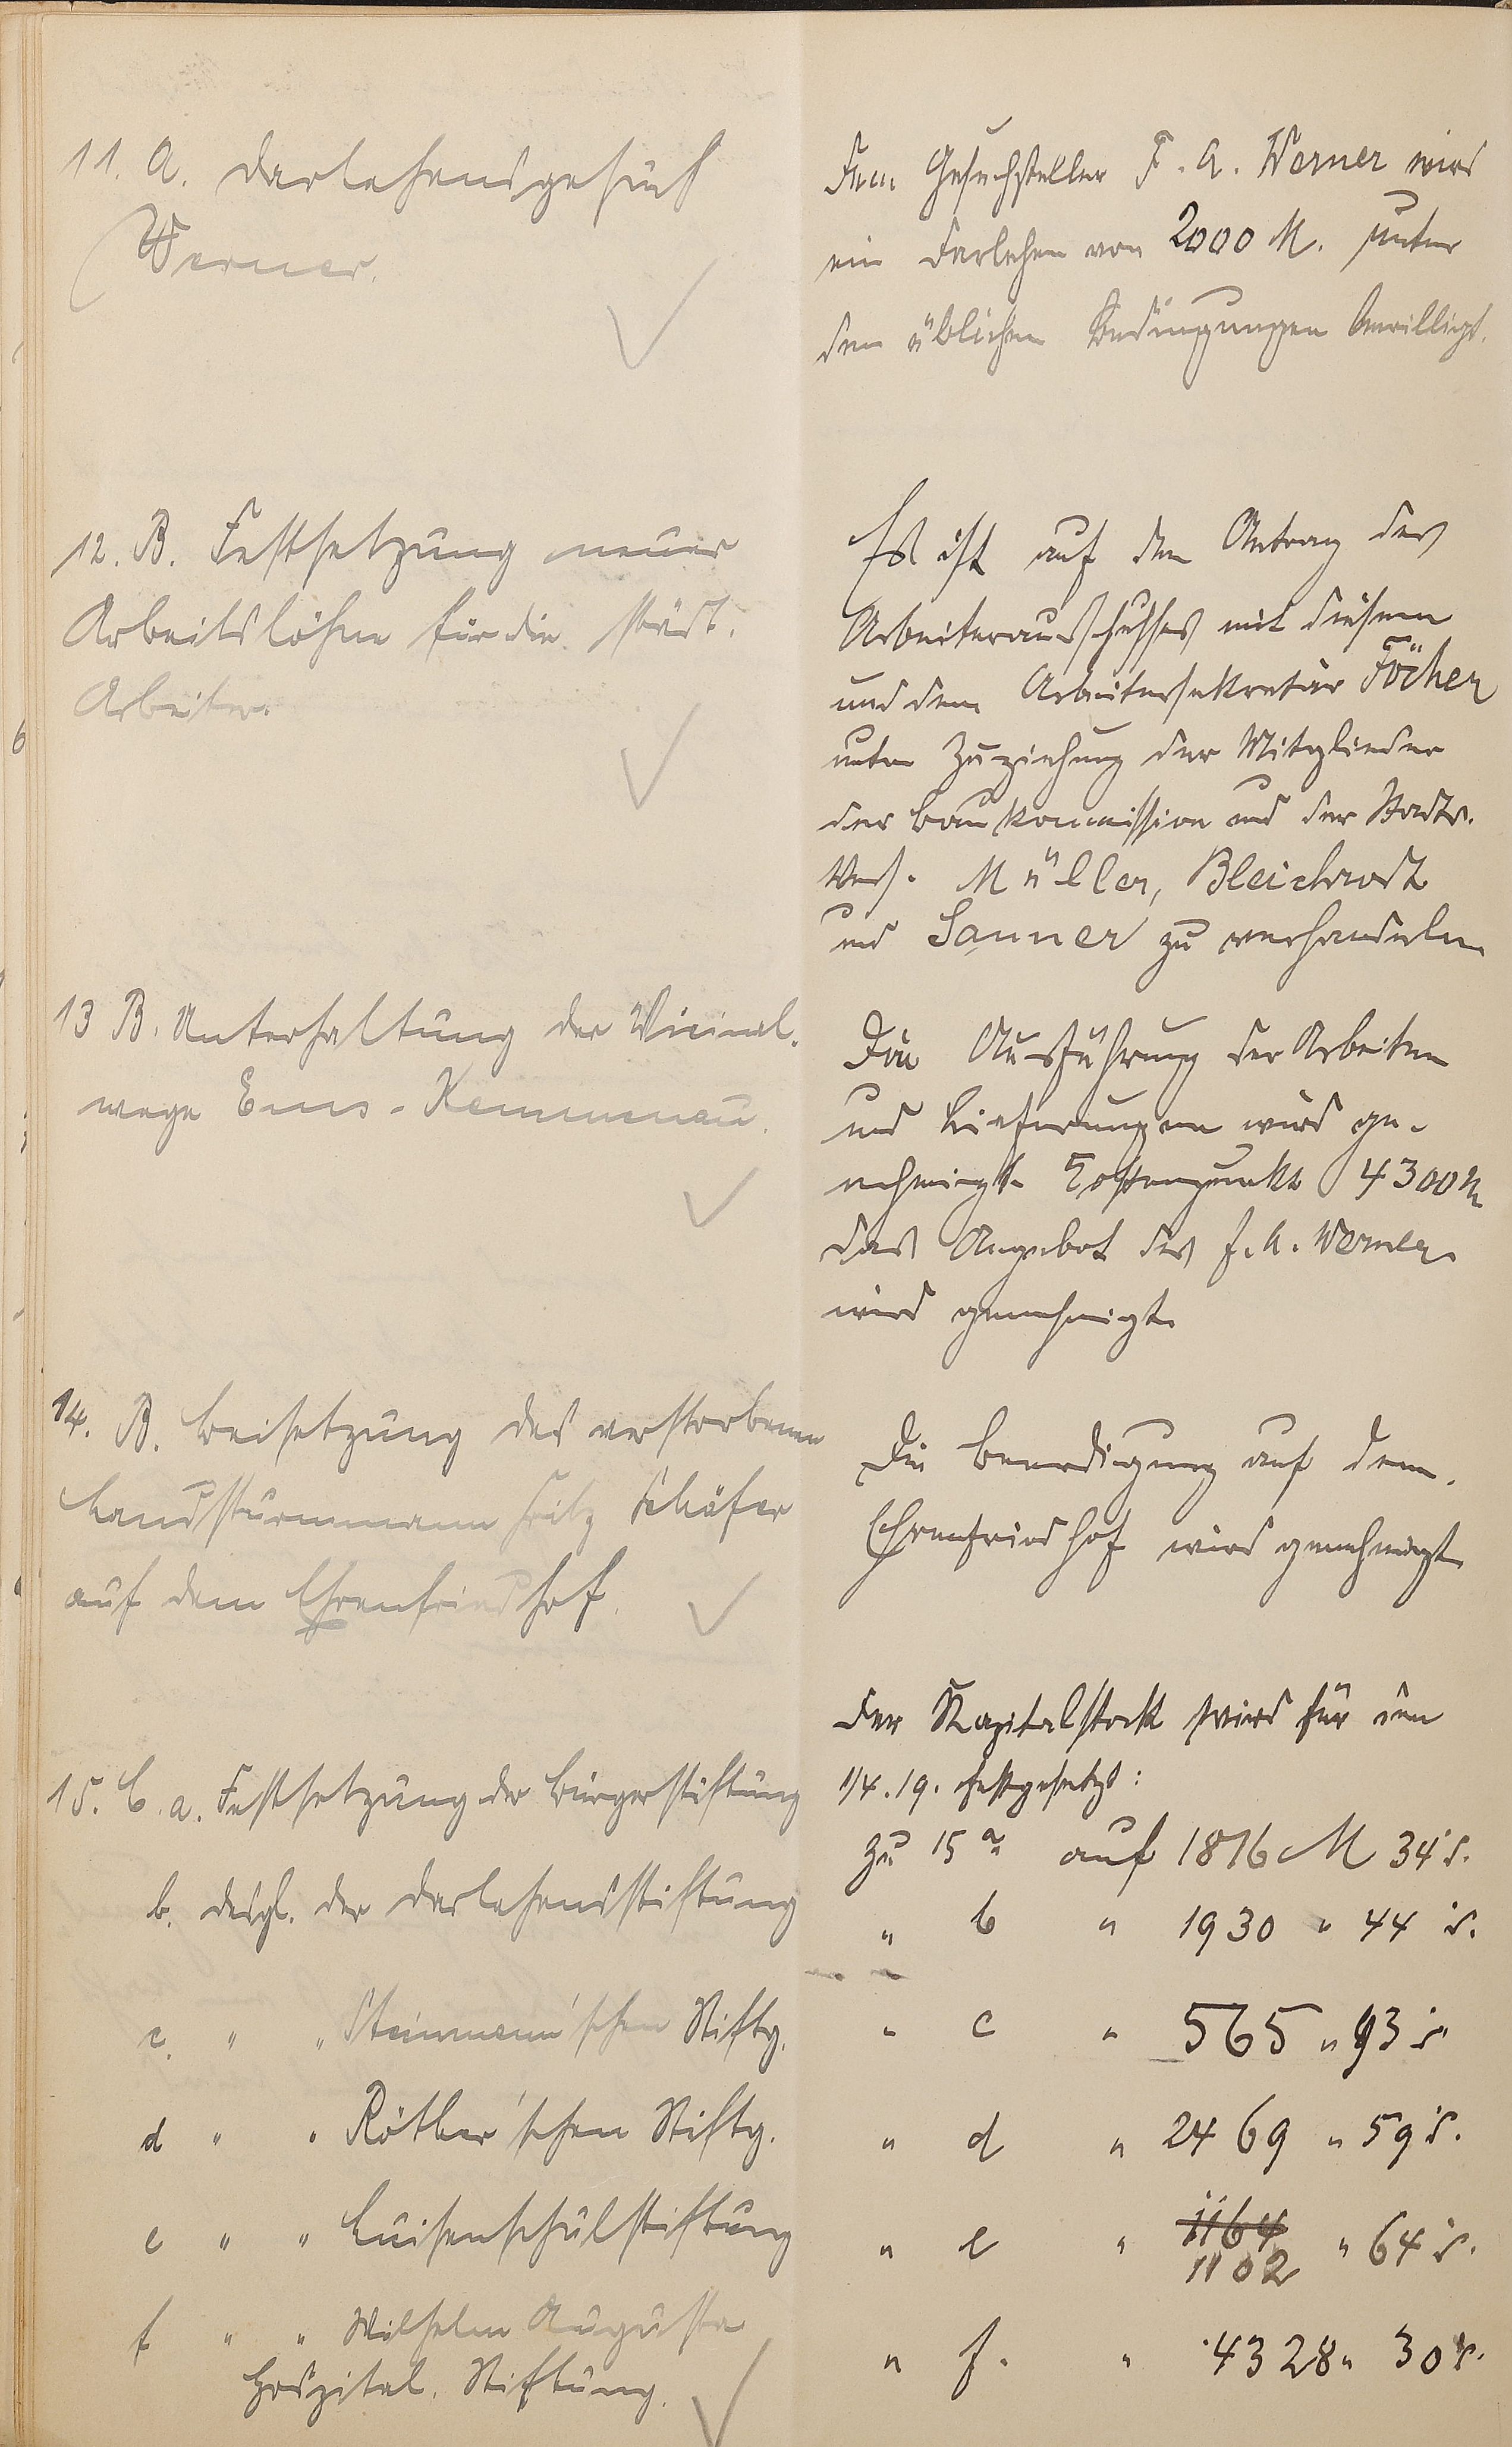 11. A. Darlehensgesuch
Werner.
Dem Gesuchsteller F. A. Werner wird
ein Darlehen von 2000 M. unter
den üblichen Bedingungen bewilligt.
12. B. Festsetzung neuer
Arbeitslöhne für die städt.
Arbeiter.
Es ist auf den Antrag des
Arbeiterausschusses mit diesem
und dem Arbeitersekretär Föcher
unter Zuziehung der Mitglieder
der Baukommission und der Stadtv.
Vers. Müller, Bleichrodt
und Sanner zu verhandeln
13 B. Unterhaltung der Vicinal-
wege Ems-Kemmenau.
Die Ausführung der Arbeiten
und Lieferungen wird ge-
nehmigt. Kostenpunkt 4300 M
das Angebot des F. A. Werner
wird genehmigt.
14. B. Beisetzung des verstorbenen
Landsturmmann Fritz Schäfer
auf dem Ehrenfriedhof.
Die Beerdigung auf dem
Ehrenfriedhof wird genehmigt
15. C. a. Festsetzung der Bürgerstiftung
b. desgl. der Darlehensstiftung
c. " " Steinmann'schen Stiftg.
d " " Röther'schen Stiftg.
e " " Luisenschulstiftung
f " " Wilhelm Augusta
Hospital. Stiftung.
Der Kapitalstock wird für den
1/4. 19. festgesetzt:
zu 15 a auf 1876 M 34 S.
" b " 1930 " 44 S.
" c " 565 " 93 S.
" d " 2469 " 59 S.
" e " 1164
1102 " 64 S.
" f. " 4328 " 30 S.